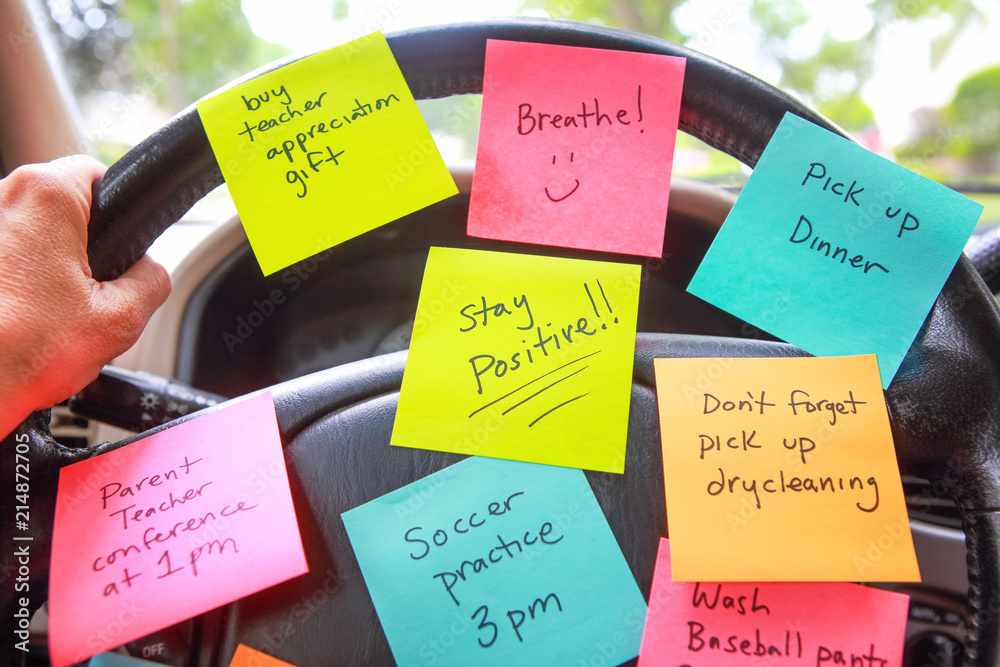 buy
teacher
appreciation
gift
Breathe!
Pick up
Dinner
Stay
Positive!!
Don't forget
pick up
drycleaning
Parent
Teacher
conference
at 1 pm
Soccer
practice
3 pm
Wash
Baseball pant
OFF
Adobe Stock
Adobe Stock | #214872705